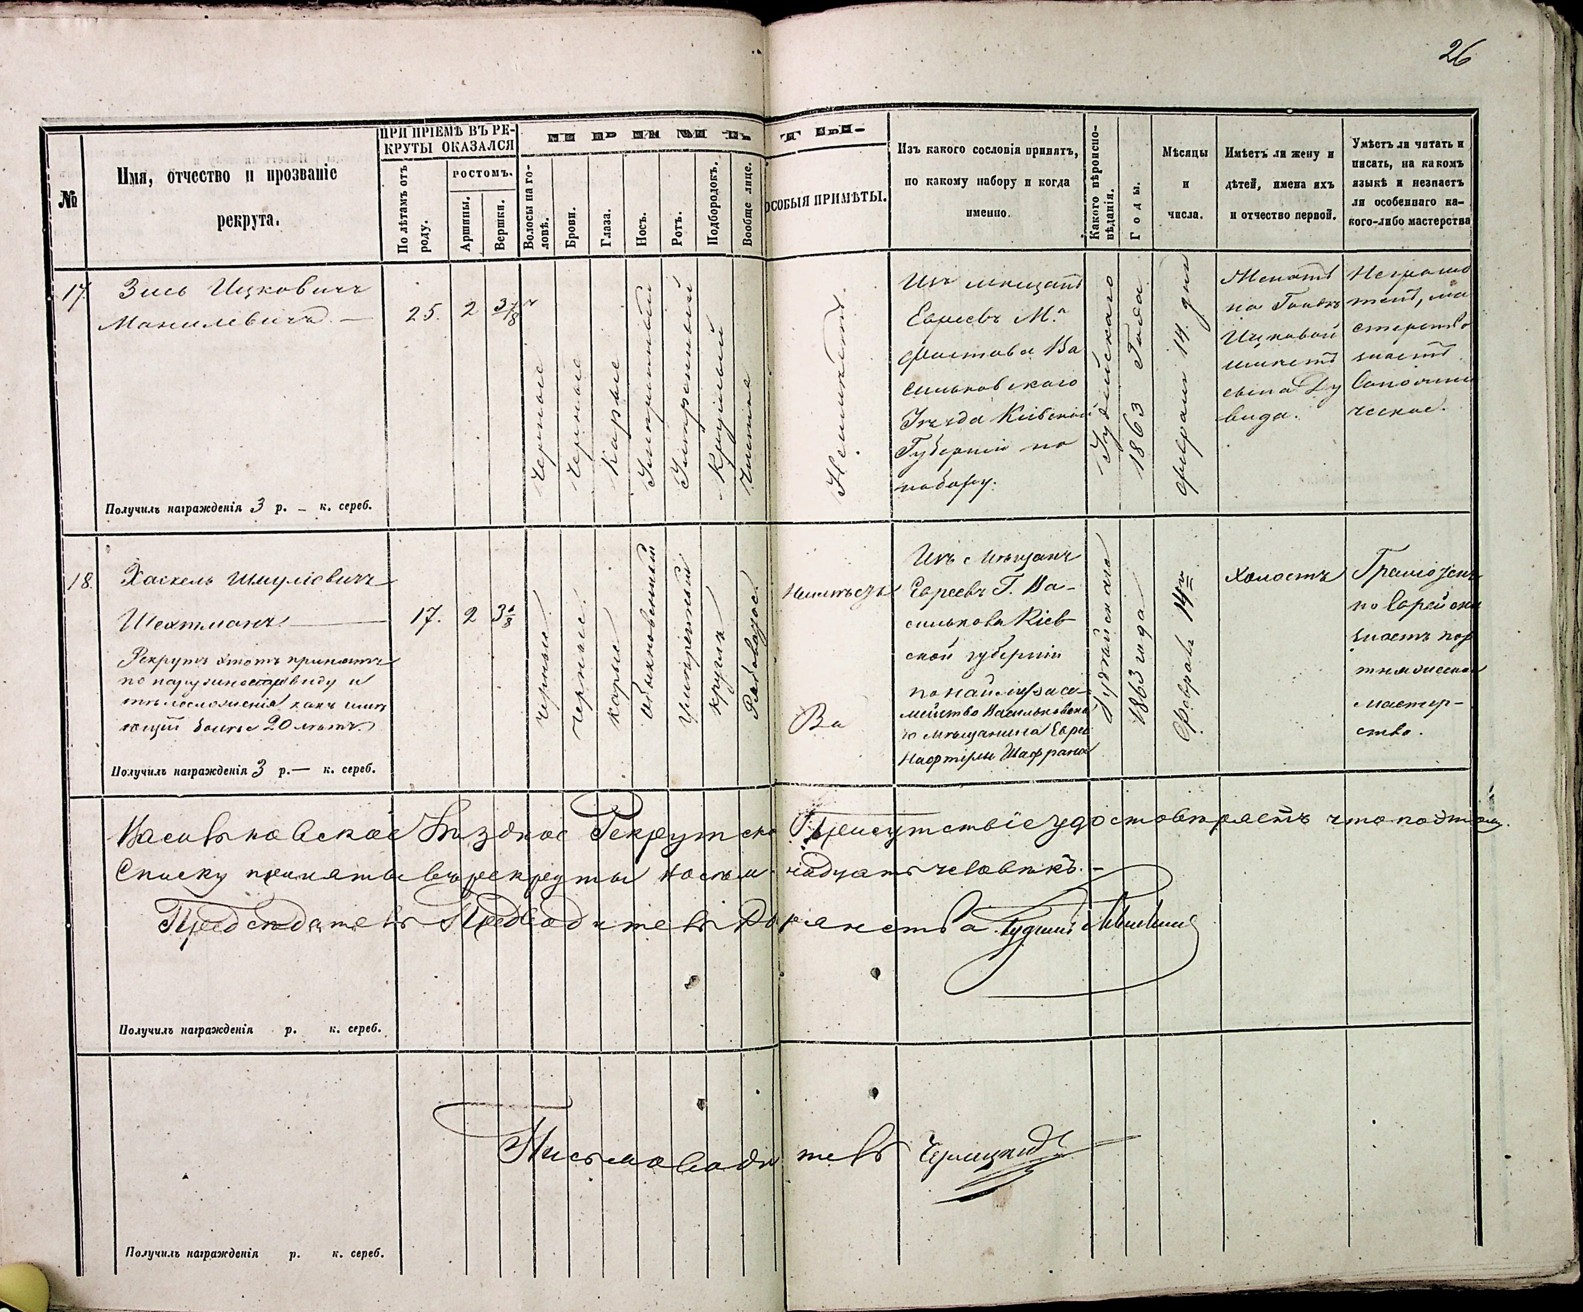 26
№
Имя, отчество и прозваніе
рекрута.
ПРИ ПРІЕМѢ ВЪ РЕ-
КРУТЫ ОКАЗАЛСЯ
По лѣтамъ отъ
роду.
РОСТОМЪ.
Аршины.
Вершки.
Волосы на го-
ловѣ.
Брови.
Глаза.
Носъ.
Ротъ.
Подбородокъ.
Вообще лице.
ОСОБЫЯ ПРИМѢТЫ.
Изъ какого сословія принятъ,
по какому набору и когда
именно.
Какого вѣроиспо-
вѣданія.
Годы.
Мѣсяцы
и
числа.
Имѣетъ ли жену и
дѣтей, имена ихъ
и отчество первой.
Умѣетъ ли читать и
писать, на какомъ
языкѣ и незнаетъ
ли особеннаго ка-
кого-либо мастерства
17
Зись Ицковичъ
Манилевичъ. —
25.
2
3 7/8
Черные
Черные
Карые
Умѣренный
Умѣренный
Круглый
Чистое
Неимѣетъ.
Изъ мещанъ
Евреевъ М.
Фастова Ва
сильковскаго
Уѣзда Кіевской
Губерніи по
набору.
Іудейскаго
1863 Года
Февраля 14. дня
Женатъ
на
Ицковой
имѣетъ
сына Ду
вида.
Неграмо
тенъ, ма
стерство
знаетъ
Сапожни
ческое.
Получилъ награжденія 3 р. — к. сереб.
18.
Хаскель Шмуліовичъ
Шехтманъ.
Рекрутъ этотъ принятъ
по наружному виду и
тѣлосложенія какъ имѣ
ющій болѣе 20 лѣтъ.
17.
2
3 1/8
Черные.
Черные.
Карые
Обыкновенный
Умѣренный
Круглъ
Рабоватое.
Неимѣетъ
Ва
Изъ Мѣщанъ
Евреевъ Г. Ва-
силькова Кіев-
ской губерніи
по найму за се-
мейство Васильковска
го Мѣщанина Евре
Нафтулы Шафрана
Іудейскаго
1863 года
Февраля 14го
Холостъ
Грамотенъ
по Еврейски
знаетъ пор
тняжеское
мастер-
ство.
Получилъ награжденія 3 р. — к. сереб.
Васильковское Уѣздное Рекрутское Присутствіе удостовѣряетъ что по этому
Списку приняты въ рекруты восемнадцать человѣкъ. —
Предсѣдатель Предводитель Дворянства
Получилъ награжденія р. к. сереб.
Письмоводитель
Получилъ награжденія р. к. сереб.